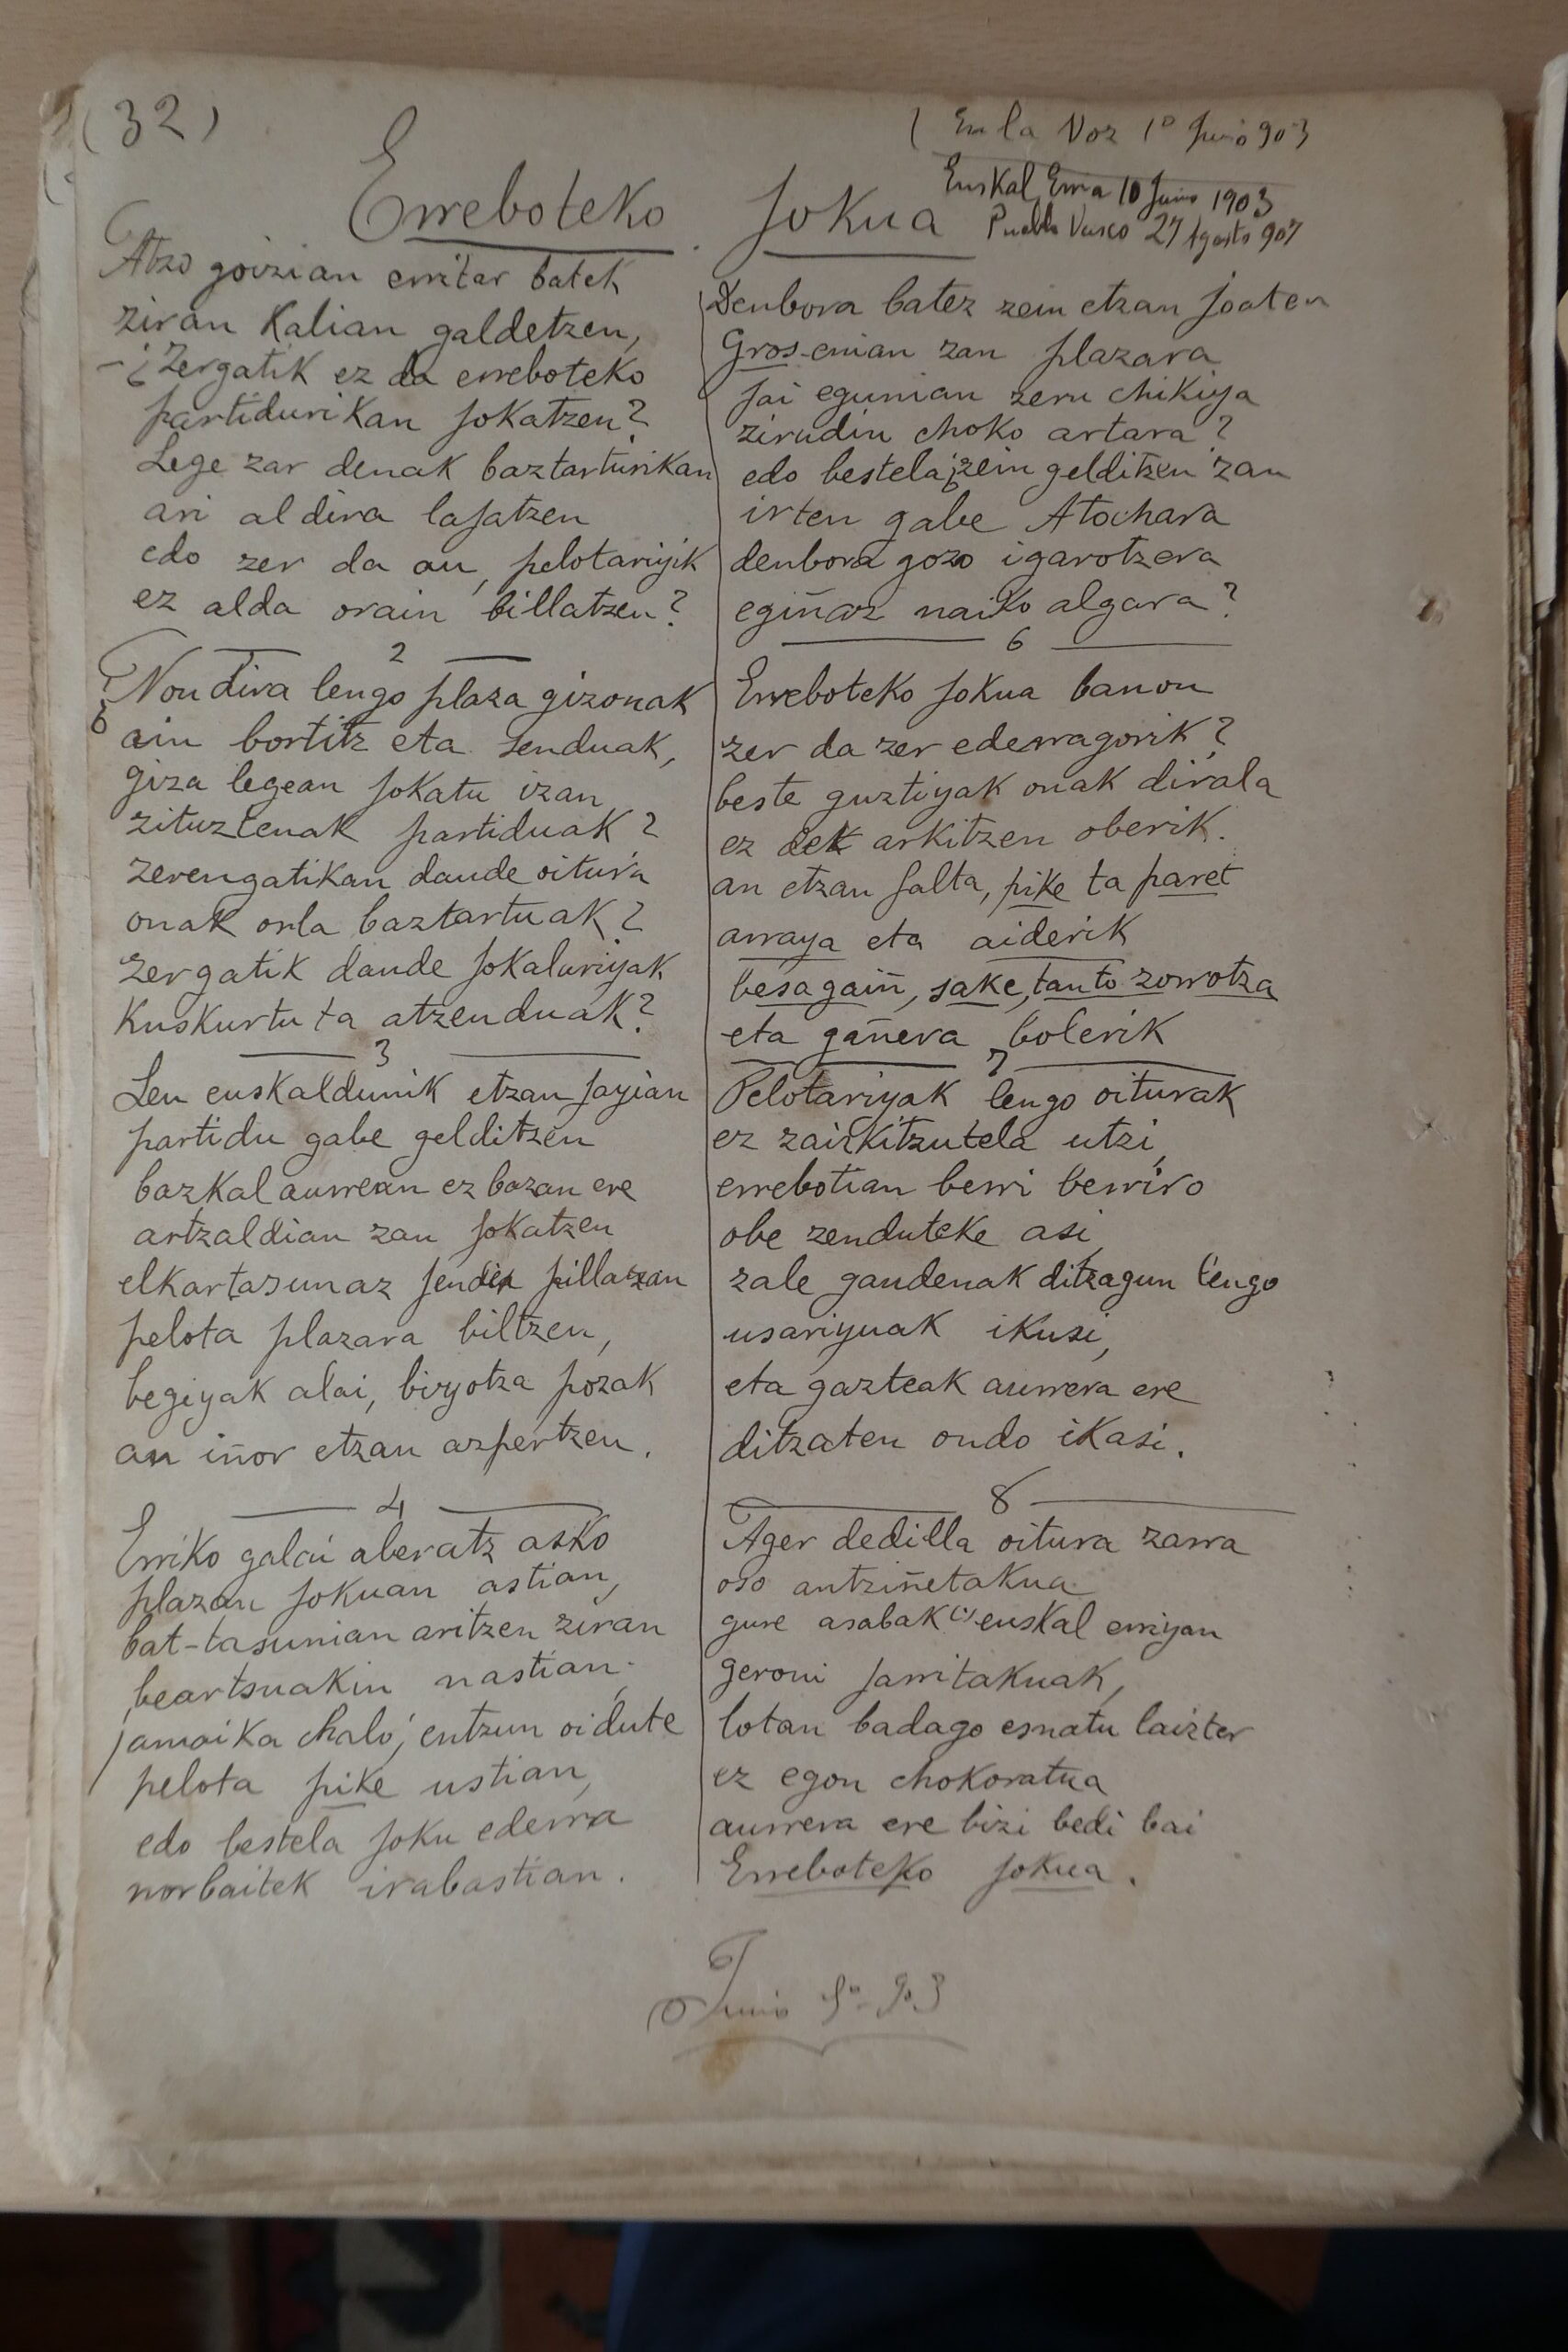 (32)
(En la Voz 1º Junio 903
Euskal Erria 10 Junio 1903
Pueblo Vasco 27 Agosto 907
Erreboteko Jokua
Atzo goizian erritar batek
ziran Kalian galdetzen,
-¿Zergatik ez da erreboteko
partidurikan jokatzen?
Lege zar denak baztarturikan
ari aldira lajatzen
edo zer da au, pelotariyik
ez alda orain billatzen?
2
¿Non dira lengo plaza gizonak
ain bortitz eta senduak,
giza legean jokatu izan
zituztenak partiduak?
zerengatikan daude oitura
onak orla baztartuak?
zergatik daude jokalariyak
Kuskurtu ta atzenduak?
3
Len euskaldunik etzan jayian
partidu gabe gelditzen
bazkal aurrean ez bazan ere
artzaldian zan jokatzen
elkartasunaz jendia pillatzan
pelota plazara biltzen,
begiyak alai, biyotza pozak
an iñor etzan aspertzen.
4
Erriko galai aberatz asko
plazan jokuan astian,
bat-tasunian aritzen ziran
beartsuakin nastian.
¡amaika chalo! entzun oi dute
pelota pike ustian,
edo bestela joku ederra
norbaitek irabastian.
Denbora batez zein etzan joaten
Gros-enian zan plazara
jai egunian zeru chikiya
zirudin choko artara?
edo bestela ¿zein gelditzen zan
irten gabe Atochara
denbora gozo igarotzera
egiñaz naiko algara?
6
Erreboteko jokua banon
zer da zer ederragorik?
beste guztiyak onak dirala
ez dek arkitzen oberik.
an etzan falta, pike ta paret
arraya eta aiderik
besagaiñ, sake, tanto zorrotza
eta gañera bolerik
7
Pelotariyak lengo oiturak
ez zaizkitzutela utzi,
errebotian berri berriro
obe zenduteke asi,
zale gaudenak ditzagun lengo
usariyuak ikusi,
eta gazteak aurrera ere
ditzaten ondo ikasi.
8
Ager dedilla oitura zarra
oso antziñetakua
gure asabak (1) euskal erriyan
geroni jarritakuak,
lotan badago esnatu laizter
ez egon chokoratua
aurrera ere bizi bedi bai
Erreboteko jokua.
Junio 1º-903